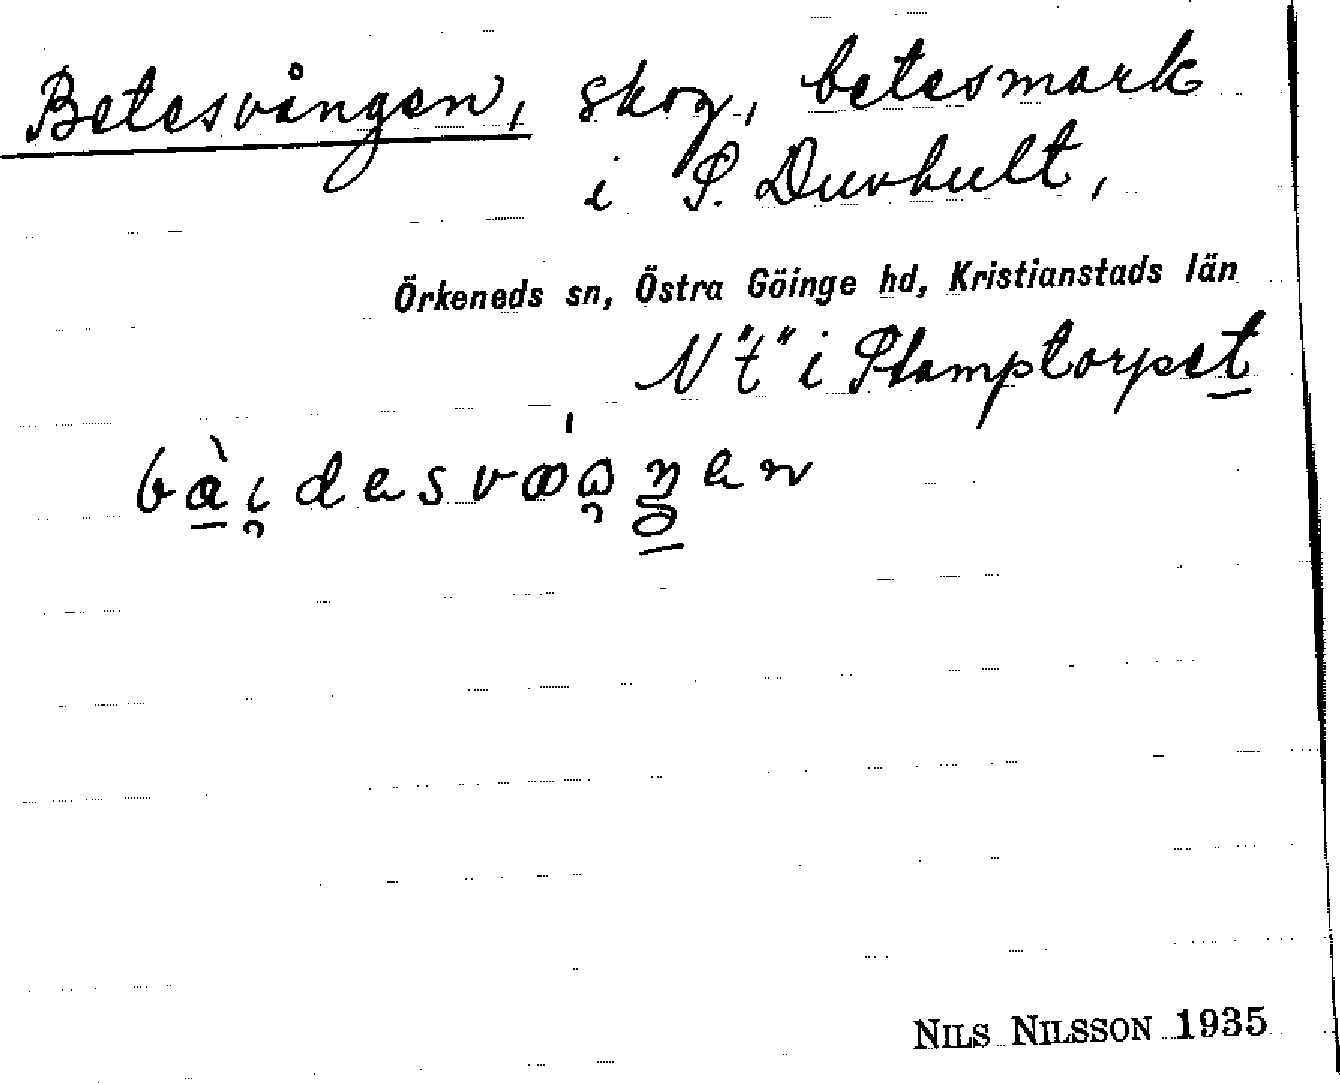 Betesvången, skog, betesmark
i S. Duvhult,
Örkeneds sn, Östra Göinge hd, Kristianstads län
N "t" i Stamptorpet
NILS NILSSON 1935